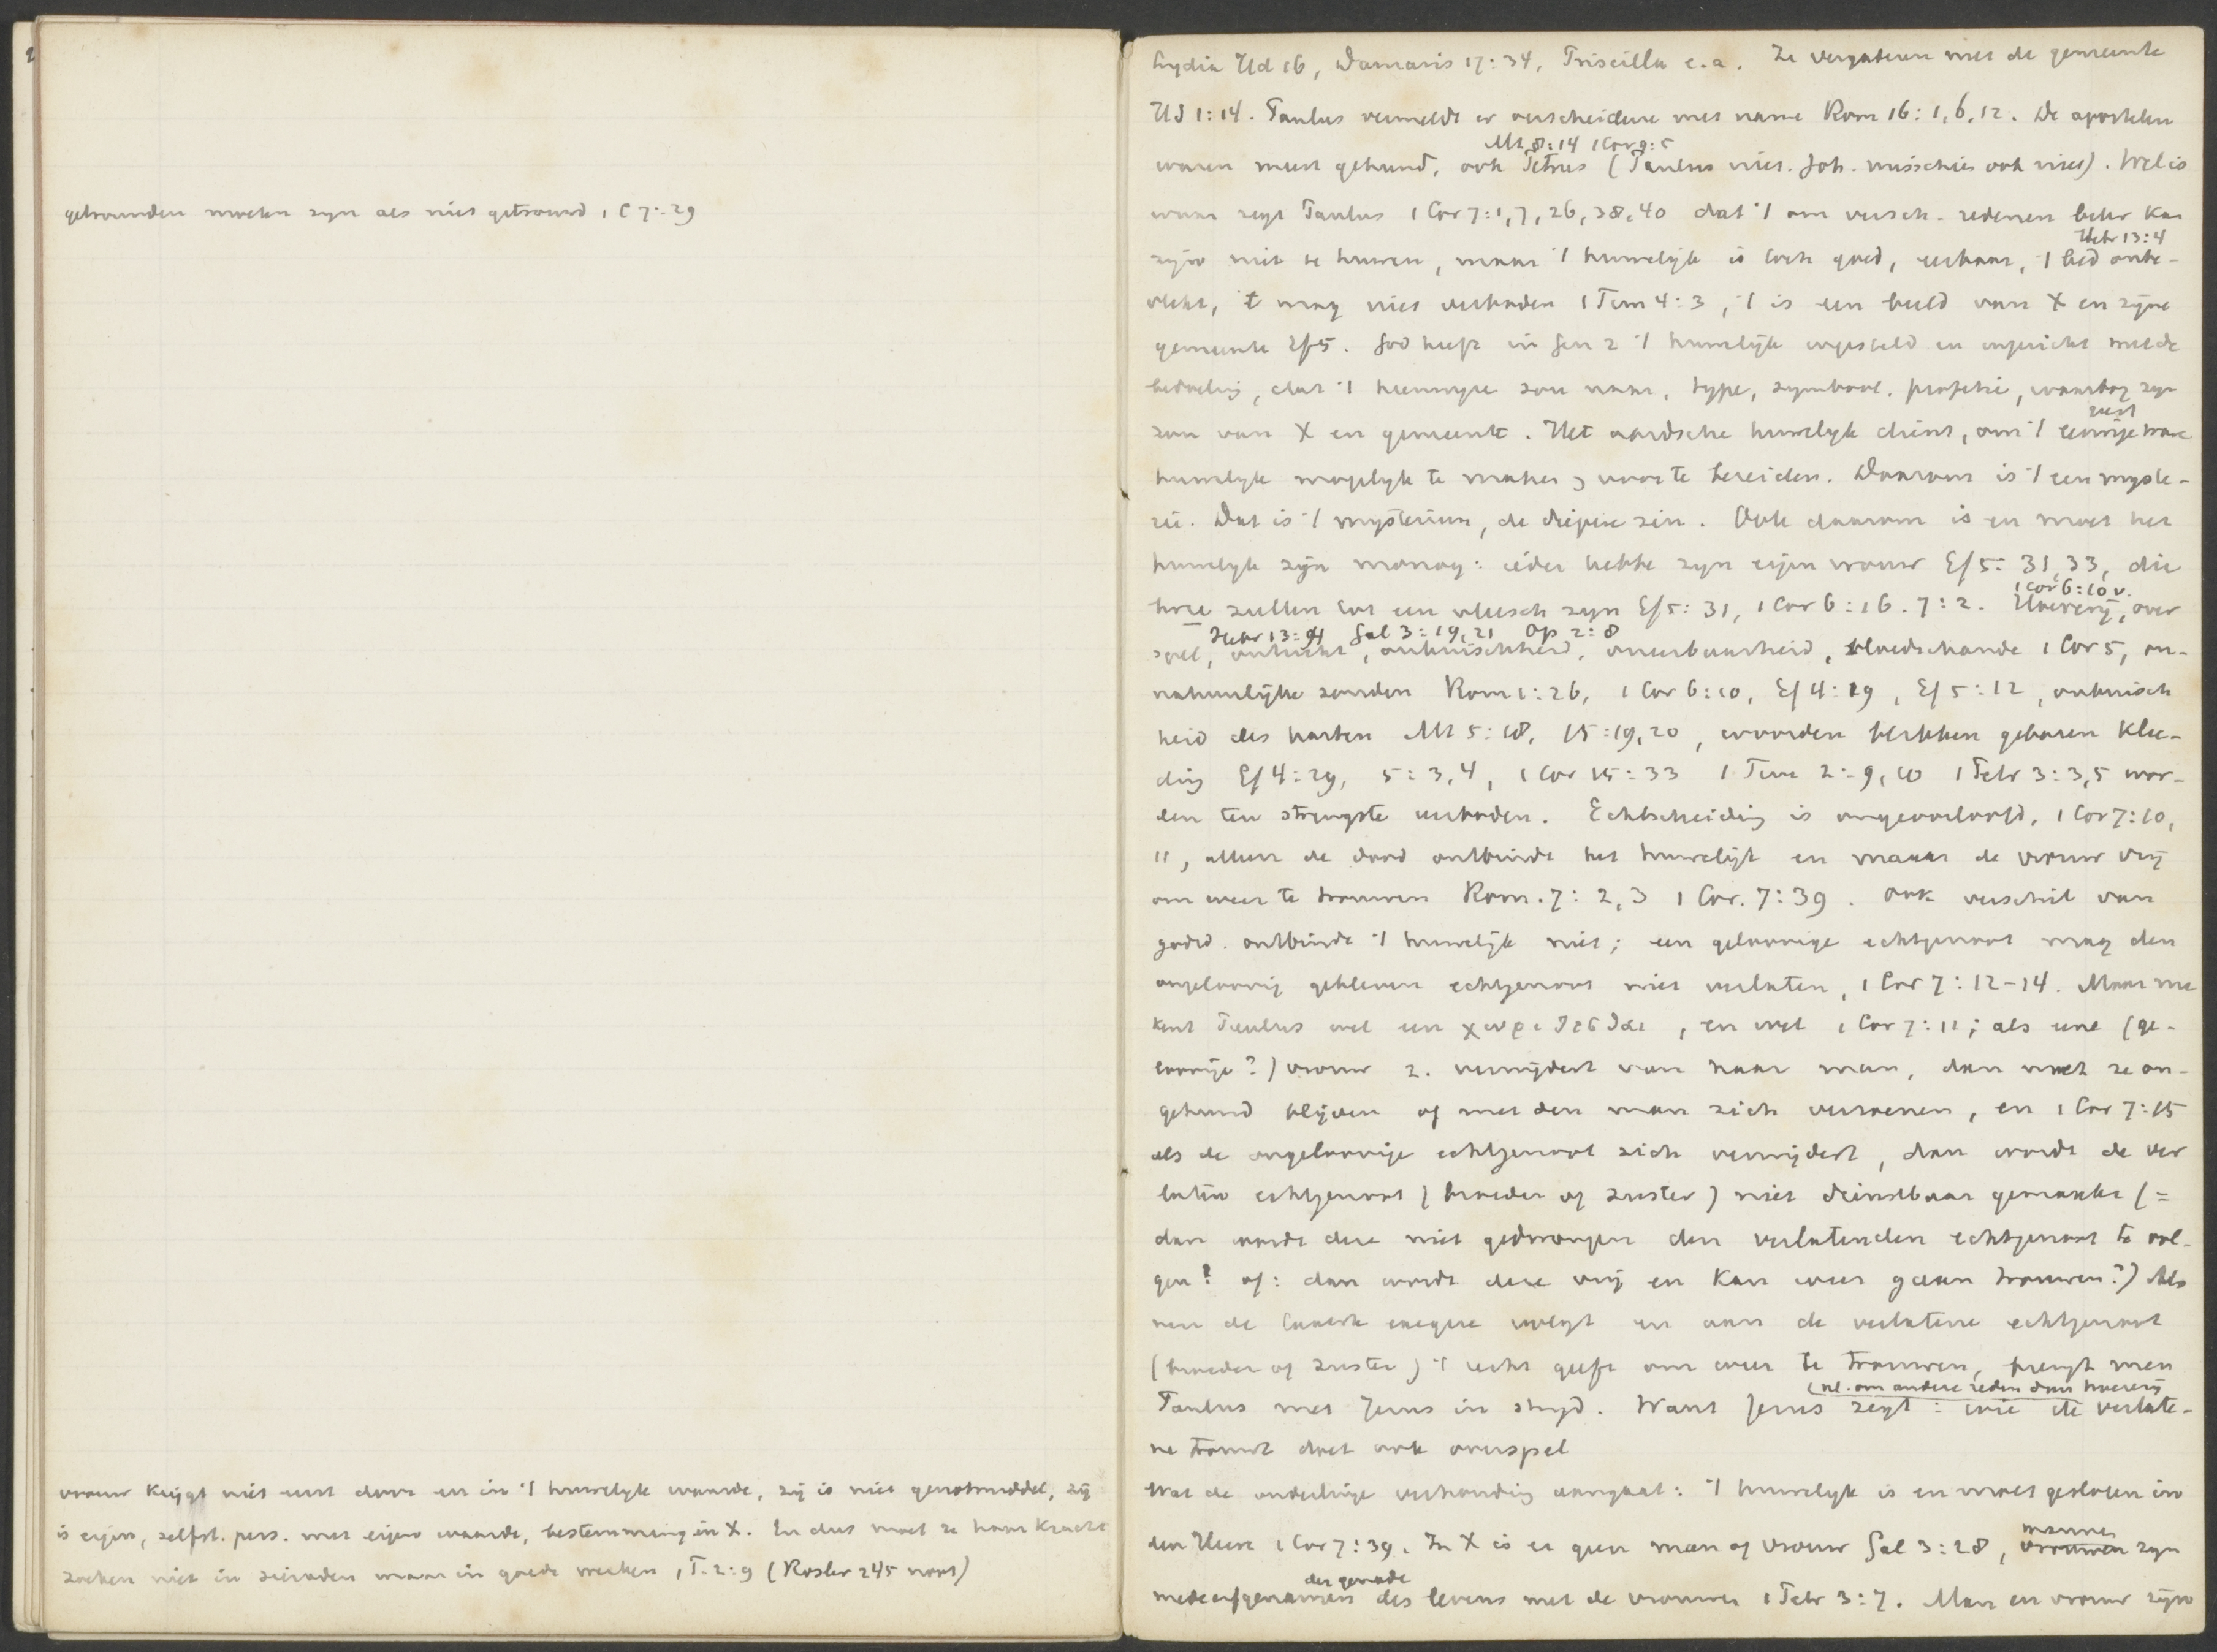 getrouwden moeten zyn als niet getrouwd 1 C 7:29
vrouw krijgt niet eerst door en in 't huwelyk waarde, zij is niet genotmiddel, zij
is eigen, zelfst. pers. met eigen waarde, bestemming in X. En dus moet ze haar kracht
zoeken niet in sieraden maar in goede werken 1 T. 2:9 (Rosler 245 noot)
Lydia Hd 16, Damaris 17:34, Priscilla e.a. Ze vergaderen met de gemeente
Hd 1:14. Paulus vermeldt er verscheidene met name Rom 16:1,6,12. De apostelen
Mt 8:14 1 Cor 9:5
waren meest gehuwd, ook Petrus (Paulus niet. Joh. misschien ook niet). Wel is
waar zegt Paulus 1 Cor 7:1,7,26,38,40 dat 't om versch. redenen beter kan
Hebr 13:4
zijn niet te huwen, maar 't huwelijk is toch goed, eerbaar, 't bed onbe-
vlekt, 't mag niet verboden 1 Tim 4:3, 't is een beeld van X en zijne
gemeente Ef 5. God heeft in Gen 2 't huwelijk ingesteld en ingericht met de
bedoeling, dat 't heenwyze zou naar, type, symbool, profetie, waarborg zyn
zou van X en gemeente. Het aardsche huwelyk dient, om 't eenige ware
huwelyk mogelyk te maken, voor te bereiden. Daarom is 't een myste-
rie. Dat is 't mysterium, de diepere zin. Ook daarom is en moet het
huwelyk zijn monog: ieder hebbe zyn eigen vrouw Ef 5:31,33, die
1 Cor 6:10 v.
twee zullen tot een vleesch zyn Ef 5:31, 1 Cor 6:16. 7:2. Hoererij, over
Hebr 13:4 Gal 3:19,21 Op 2:8
spel, ontucht, onkuischheid, oneerbaarheid, bloedschande 1 Cor 5, on-
natuurlijke zonden Rom 1:26, 1 Cor 6:10, Ef 4:19, Ef 5:12, onkuisch
heid des harten Mt 5:28, 15:19,20, woorden blikken gebaren klee-
ding Ef 4:29, 5:3,4, 1 Cor 15:33 1 Tim 2:9,10 1 Petr 3:3,5 wor-
den ten strengste verboden. Echtscheiding is ongeoorloofd, 1 Cor 7:10,
11, alleen de dood ontbindt het huwelijk en maakt de vrouw vrij
om weer te trouwen Rom. 7:2,3 1 Cor. 7:39. Ook verschil van
godsd. ontbindt 't huwelijk niet; een geloovige echtgenoot mag den
ongeloovig gebleven echtgenoot niet verlaten, 1 Cor 7:12-14. Maar nu
kent Paulus wel een χωριζεσθαι, en wel 1 Cor 7:11; als eene (ge-
loovige?) vrouw z. verwijdert van haar man, dan moet ze on-
gehuwd blijven of met den man zich verzoenen, en 1 Cor 7:15
als de ongeloovige echtgenoot zich verwijdert, dan wordt de ver
laten echtgenoot (broeder of zuster) niet dienstbaar gemaakt (=
dan wordt deze niet gedwongen den verlatenden echtgenoot te vol-
gen? of: dan wordt deze vrij en kan weer gaan trouwen?) Als
men de laatste exegese volgt en aan de verlatene echtgenoot
(broeder of zuster) 't recht geeft om weer te trouwen, brengt men
(nl. om andere reden dan hoererij
Paulus met Jezus in stryd. Want Jezus zegt: wie de verlate-
ne trouwt doet ook overspel
Wat de onderlinge verhouding aangaat: 't huwelyk is en moet gesloten in
den Heere 1 Cor 7:39. In X is er geen man of vrouw Gal 3:28, mannen zyn
der genade
medeerfgenamen des levens met de vrouwen 1 Petr 3:7. Man en vrouw zijn